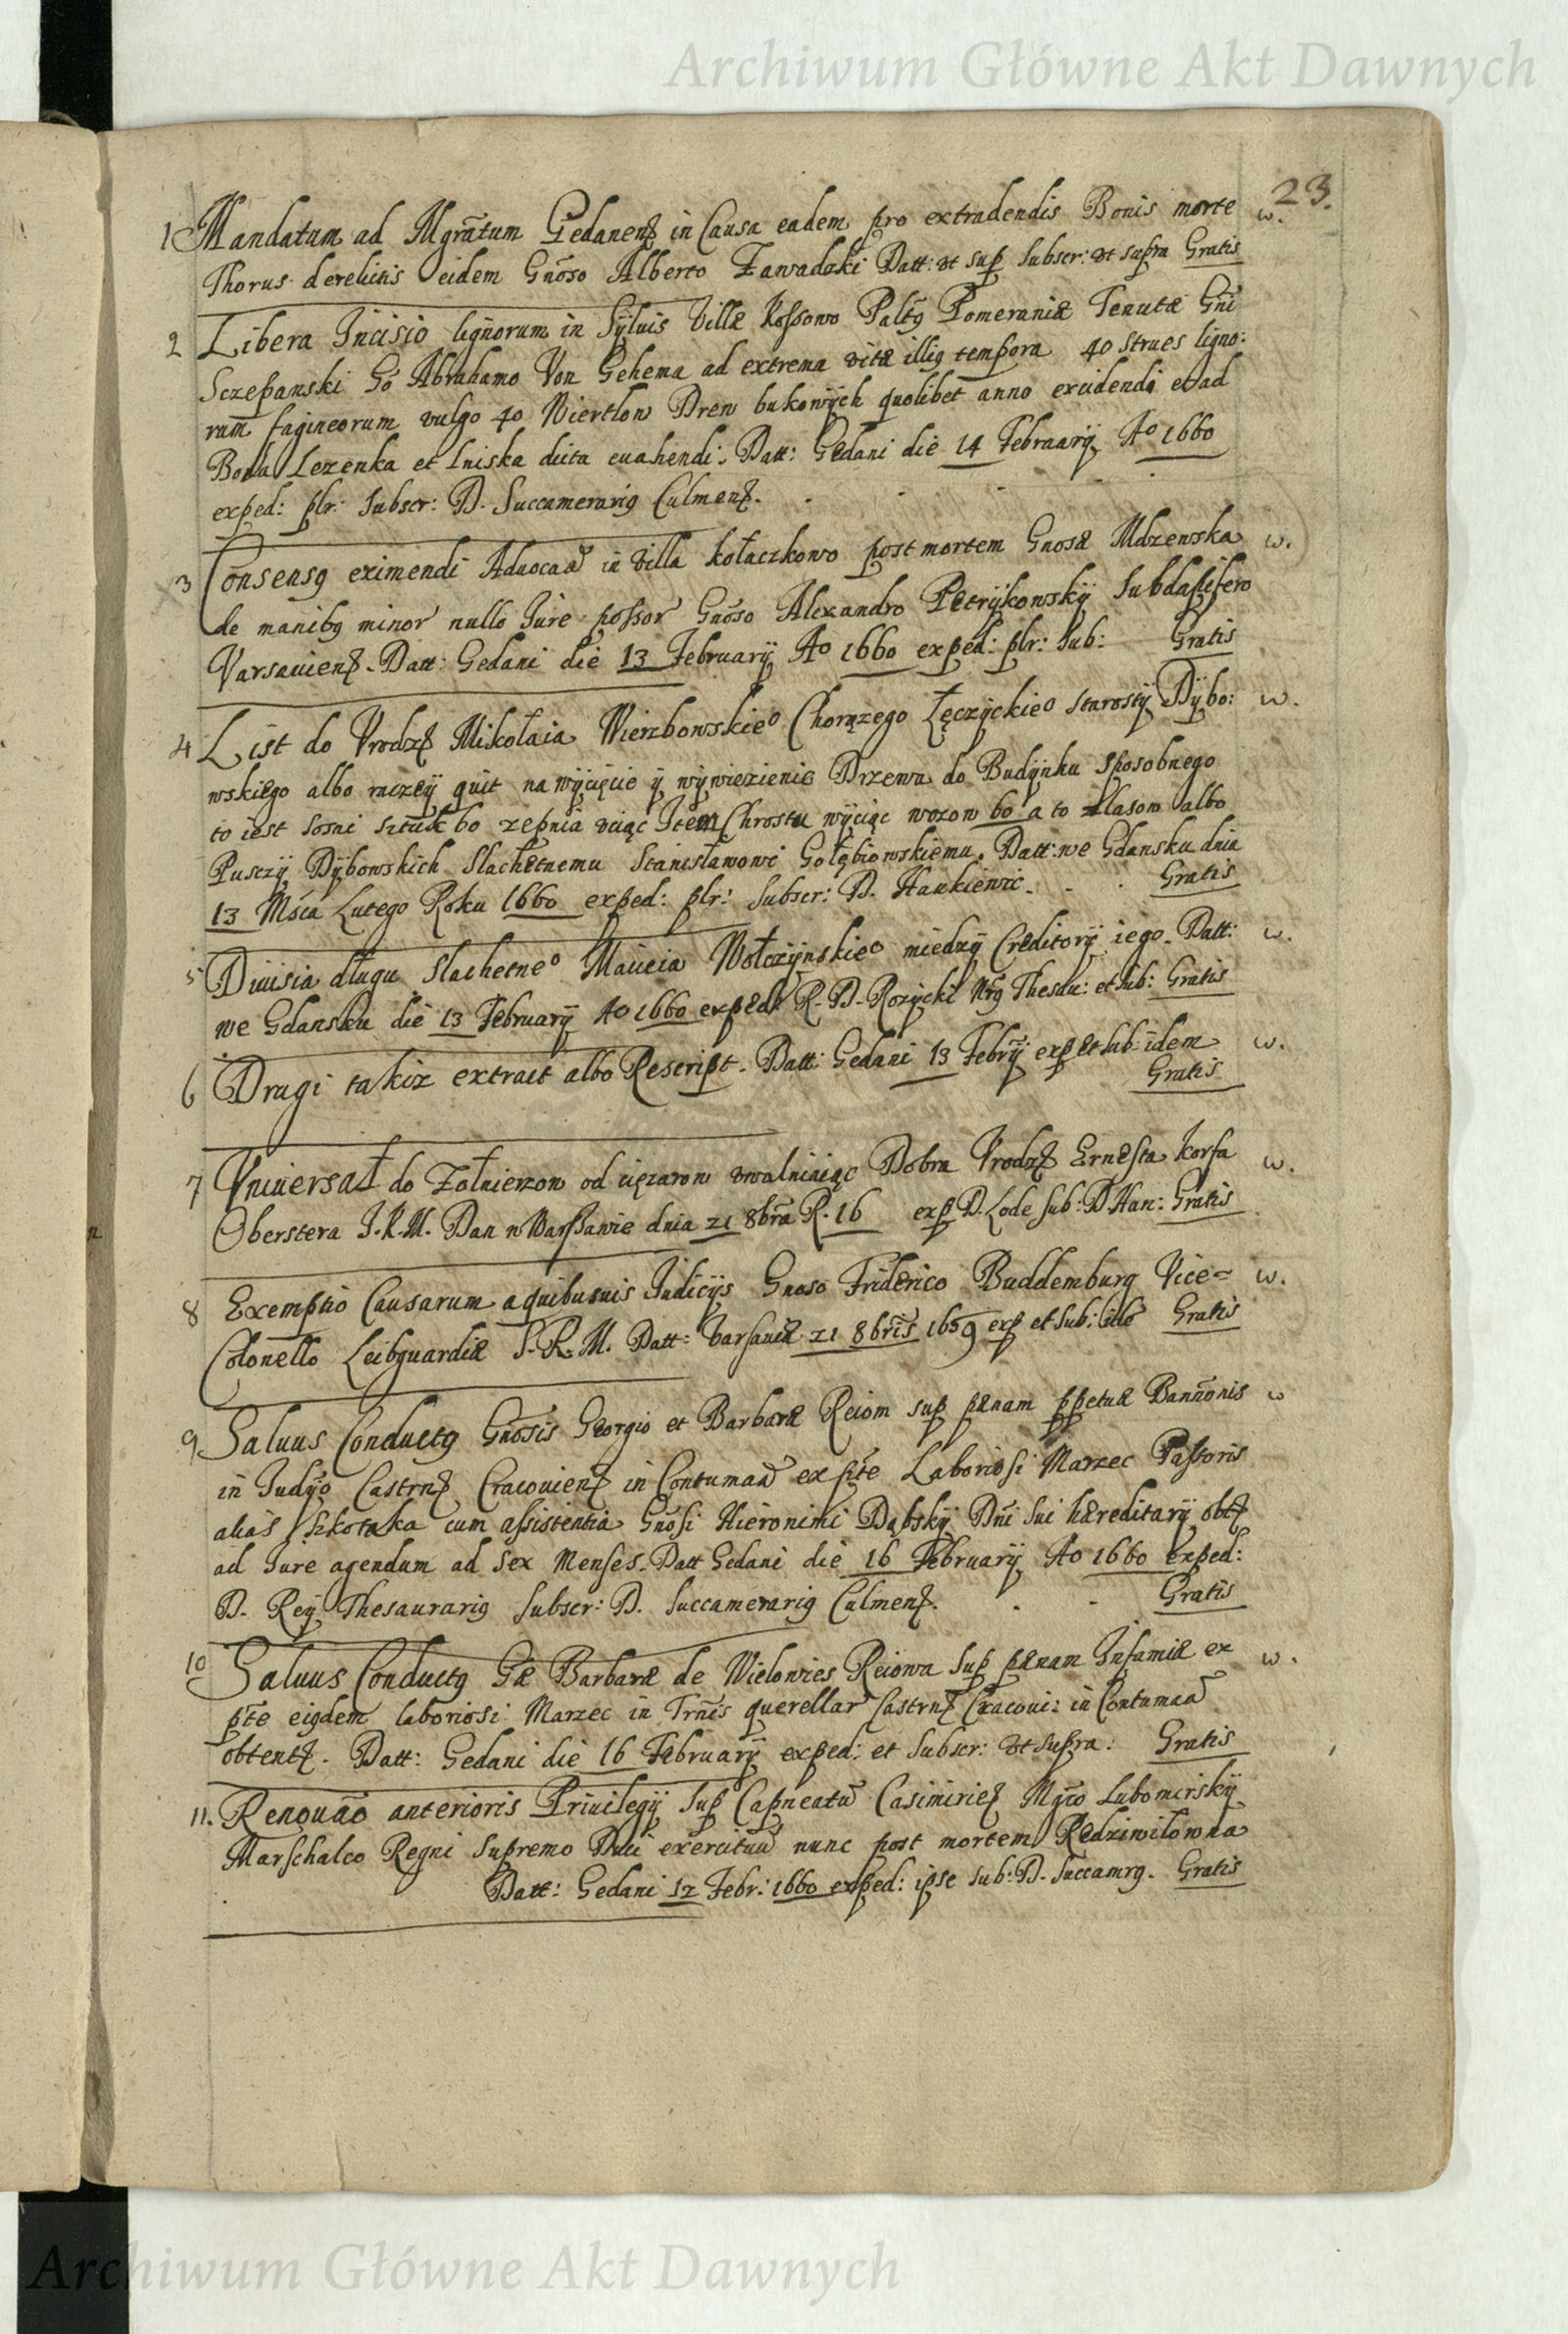 Archiwum Główne Akt Dawnych
23.
1 Mandatum ad Mgrãtum Gedanenꝫ in Causa eadem pro extradendis Bonis morte w.
Thorus derelictis eidem Gnõso Alberto Zawadzki Datt: ut sup Subscr: ut supra Gratis
2 Libera Incisio lignorum in Sylvis Villæ Kossowo Paltꝰ Pomeraniæ Tenutæ Gñi
Sczepanski Go Abrahamo Von Gehema ad extrema vitæ illiꝰ tempora 40 Strues ligno:
rum fagineorum vulgo 40 Wiertlow Drew bukowych quolibet anno excidendi et ad
Bona Lezenka et Lniska dicta euahendi. Datt: Gedani die 14 Februarij Ao 1660
exped: plr: Subscr: D. Succamerariꝰ Culmenꝫ.
3 Consensꝰ eximendi Aduocaã in Villa Kołaczkowo post mortem Gnosæ Mdzewska w.
de manibꝰ minor nullo Jure possor Gnõso Alexandro Petrykowskij Subdapifero
Varsauienꝫ. Datt: Gedani die 13 Februarij Ao 1660 exped: plr: Sub: Gratis
4 List do Vrodzꝫ Mikołaia Wierzbowskieo Chorązego Łęczyckieo Starosty Dybo: w.
wskiego albo raczey quit na wycięcie y wywiezienie Drzewa do Budynku sposobnego
to iest Sosni sztuk 60 ze pnia uciąc Item Chrostu wyciąc wozow 60 a to z Lasow albo
Pusczy Dybowskich Slachetnemu Stanisławowi Gołębiowskiemu. Datt: we Gdansku dnia
13 Mśca Lutego Roku 1660 exped: plr: Subscr: D. Hankiewic. Gratis
5 Diuisia długu Slachetneo Macieia Wołczynskieo miedzy Creditory iego. Datt: w.
we Gdansku die 13 Februarij Ao 1660 exped: R. D. Rozycki Nrꝰ Thesau: et sub: Gratis
6 Drugi takiz extract albo Rescript. Datt: Gedani 13 Febrij exp et sub idem w.
Gratis
7 Vniuersał do Zołnierzow od ciężarow uwalniaiąc Dobra Vrodzꝫ Ernesta Korfa w.
Oberstera J. K. M. Dan w Warszawie dnia 21 8bra R. 16 exp D. Lode sub: D. Han: Gratis
8 Exemptio Causarum a quibusuis Judicijs Gnoso Friderico Buddemburg Vice= w.
Colonello Leibguardiæ S. R. M. Datt: Varsauiæ 21 8bris 1659 exp et sub: illo Gratis
9 Saluus Conductꝰ Gnõsis Georgio et Barbaræ Reiom sup pænam ppetuæ Bannõnis w
in Judijo Castrnꝫ Cracouienꝫ in Contumaã ex pte Laboriosi Marzec Pastoris
alias Szkotaka cum assistentia Gnõsi Hieronimi Dąbskij Dni sui hæreditarij obtꝫ
ad Jure agendum ad sex Menses. Datt Gedani die 16 Februarij Ao 1660 exped:
D. Rey Thesaurariꝰ Subscr: D. Succamerariꝰ Culmenꝫ. Gratis
10 Saluus Conductꝰ Gæ Barbaræ de Wielowies Reiowa Sup pænam Infamiæ ex w.
pte eiꝰdem laboriosi Marzec in Trñis querellar Castrnꝫ Cracoui: in Contumaã
obtentꝫ. Datt: Gedani die 16 Februarij exped: et Subscr: ut supra: Gratis
11. Renouão anterioris Priuilegij Sup Capneatu Casimirieꝫ Mgco Lubomirskij
Marschalco Regni Supremo Duci exercituu nunc post mortem Redziwiłowna
Datt: Gedani 12 Febr: 1660 exped: ipse sub: D. Succamrꝰ. Gratis
Archiwum Główne Akt Dawnych